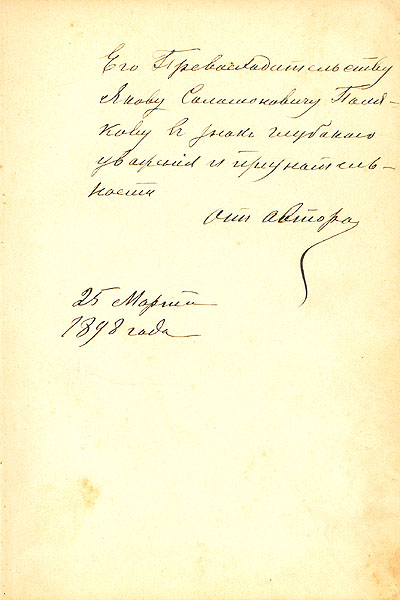 Его Превосходительству
Якову Соломоновичу Поля-
кову въ знакъ глубокаго
уваженія и признатель-
ности
отъ автора
25 Марта
1898 года